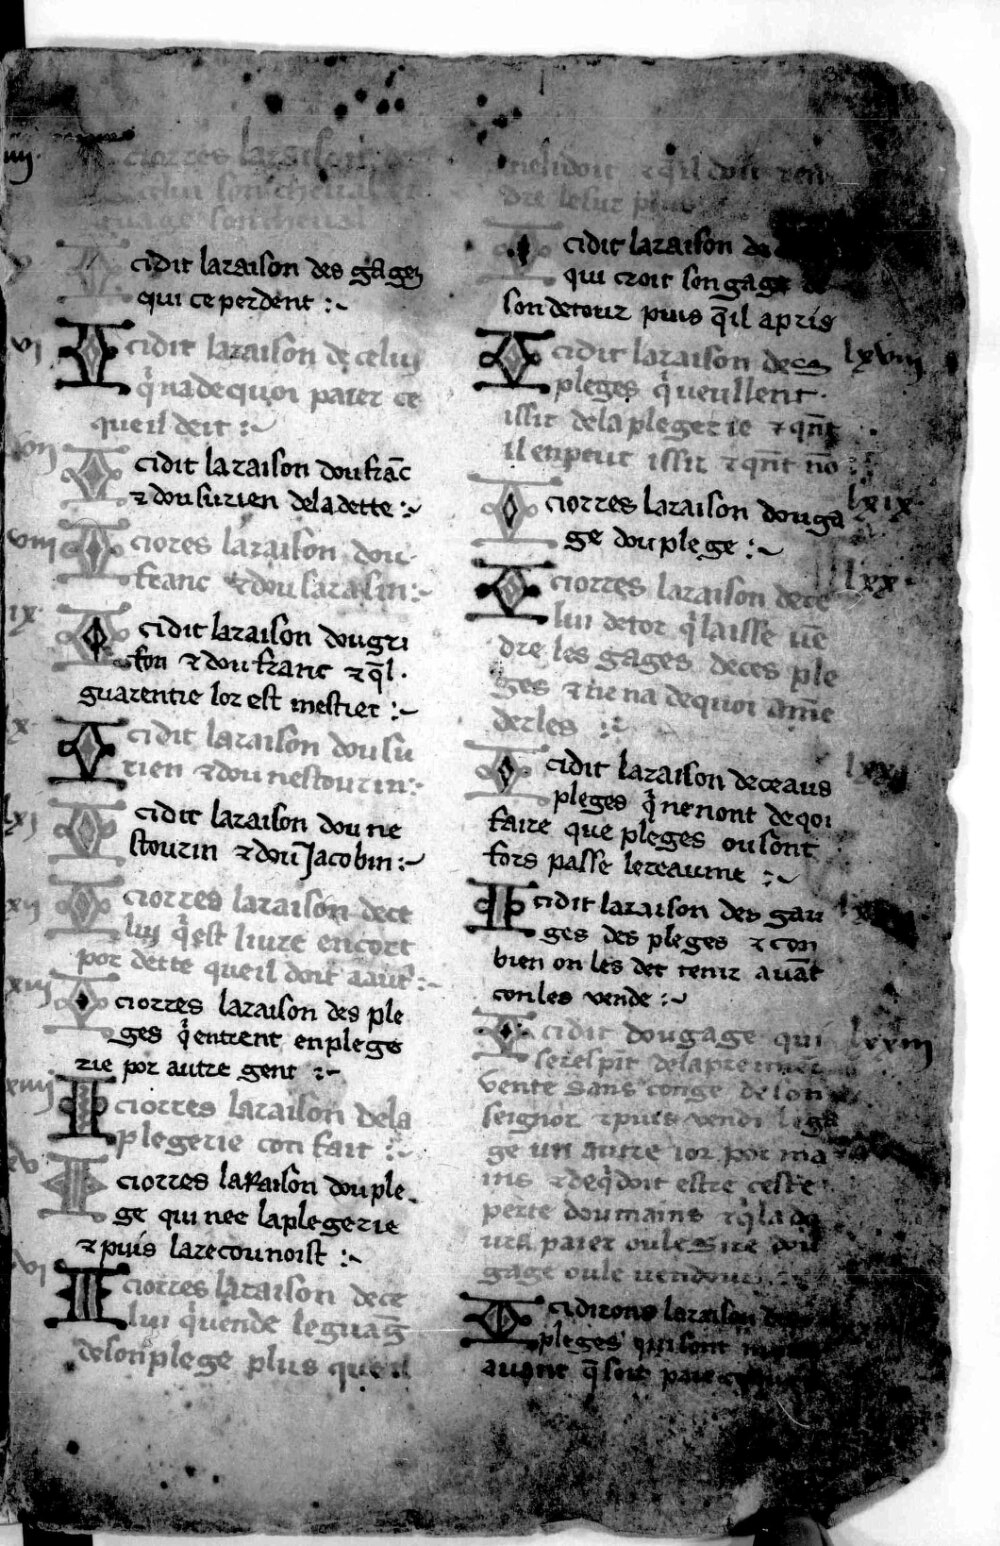 iiij
ciorres laraison de
celui son cheual
guage son cheual
I cidit laraison des gages
qui ce perdent :~
vj I cidit laraison de celuy
q̇ na de quoi paier ce
que il deit :~
I cidit la raison dou franc̄
⁊ dou surien de la dette :~
viii I ciores laraison dou
franc ⁊ dou sarasin :~
ix I cidit laraison dou gri
fon ⁊ dou franc ⁊ q̄l
guarentie lor est mestier :~
x I cidit laraison dou su
rien ⁊ dou nestourin :~
lxj I cidit laraison dou ne
stourin ⁊ dou Jacobin :~
xij I ciorres laraison de ce
luy q̇ est liure encort
por dette que il doit a aut̄ :~
xiij I ciorres laraison des ple
ges q̇ entrent en plege
rie por autre gent :~
xiiij I ciorres laraison de la
plegerie con fait :~
xv I ciorres la Raison dou ple
ge qui nee la plegerie
⁊ puis la recounoist :~
vi I ciorres laraison de ce
lui q̇ uende le guaḡ
de son plege plus que il
ne li doit ⁊ q̄ il doit ren
dre le sur plus
I cidit laraison de
qui croit son gage
son detour puis q̄ il a pris
I cidit laraison de ces lxviij
pleges q̇ ueullent
issir de la plegerie ⁊ qn̄t
il en peut issir ⁊ qn̄t nō
I ciorres laraison dou ga lxix
ge dou plege :~
I ciorres laraison de ce lxx
lui detor q̇ laisse uē
dre les gages de ces ple
ges ⁊ il e na de quoi amē
der les :~
I cidit laraison de ceaus lxxj
pleges q̇ ne nont de qoi
faire que pleges ou sont
fors passe le reaume :~
I cidit laraison des gau
ges des pleges ⁊ con
bien on les det tenir auāt
con les vende :~
I cidit dou gage qui lxxiij
se respit de la premier
vente sans conge de son
seignor ⁊ puis vendi le ga
ge un autre ior por ma
ins ⁊ de q̇ doit estre ceste
perte dou mains ⁊ q̇ la de
ura paier ou le sire dou
gage ou le uendour
I cidirons laraison
pleges qui sont
auant q̄ soit paie